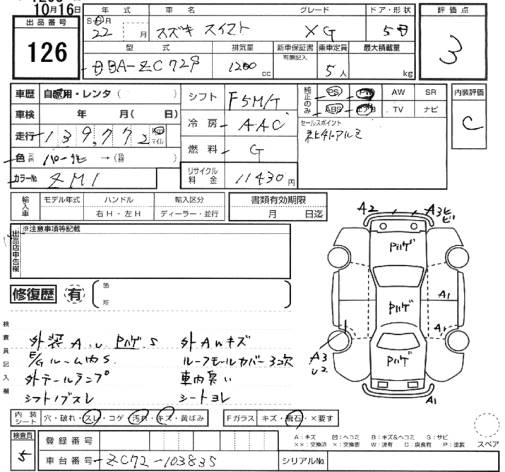 10月16日
出品番号
126
年式 車名 グレード ドア・形状
22 月 スズキ スイフト XG 5
型式 排気量 新車保証書 乗車定員 最大積載量
有無記入
DBA-ZC72S 1200 cc 5人 kg
評価点
3
車歴 自家用・レンタ ( )
車検 年 月( 日)
走行 139,772
色 パール
カラーNo ZM1
シフト F5M/T
冷房 AAC
燃料 G
リサイクル料金 11430円
純正のみ PS PW AW SR
ABS エアB TV ナビ
セールスポイント
社外アルミ
内装評価
C
輸入車 モデル年式 ハンドル 輸入区分
右H・左H ディーラー・並行
書類有効期限
月 日迄
出品店申告欄 ※注意事項等記載
修復歴 有 箇所
検査員記入欄
外装A.U Pハゲ.S 外AUキズ
E/Gルーム内S ルーフモールカバー3コ欠
外テールランプ 車内臭い
シフトノブスレ シートヨレ
A2 A3
Pハゲ
Pハゲ A1
A3 U2 A1
Pハゲ
A1
内装シート 穴・破れ・スレ・コゲ・汚れ・キズ・黄ばみ Fガラス キズ・飛石・×要す
検査員 5
登録番号
車台番号 ZC72-103835 シリアルNo
A:キズ U:凹ヘコミ B:キズ&ヘコミ S:サビ
××:交換済 ×:要交換 W:波有 C:腐食有 P:塗装
スペア